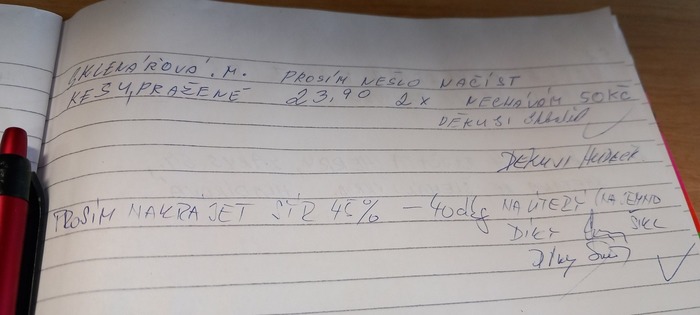 SKLENÁŘOVÁ. M. PROSÍM NEŠLO NAČÍST
KEŠU, PRAŽENÉ 23,90 2x NECHÁVÁM 50KČ
DĚKUJI
DĚKUJI
PROSÍM NAKRÁJET SÝR 45% - 40dkg NA ÚTERÝ (NAJEMNO
DÍKY
Díky